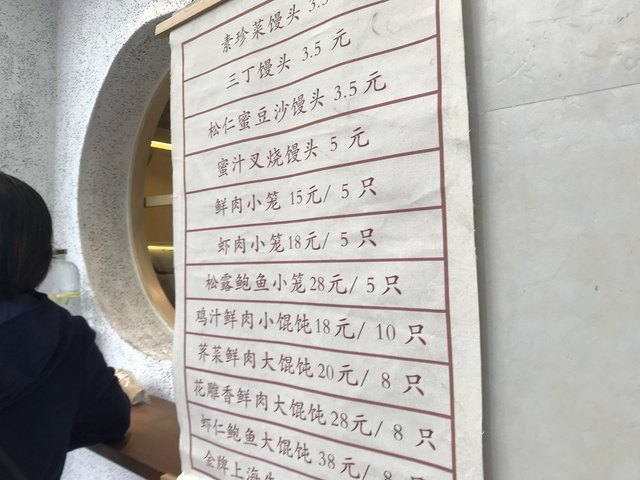 素珍菜馒头 3.5
三丁馒头 3.5 元
松仁蜜豆沙馒头 3.5 元
蜜汁叉烧馒头 5 元
鲜肉小笼 15元/ 5 只
虾肉小笼18元/ 5 只
松露鲍鱼小笼28元/ 5 只
鸡汁鲜肉小馄饨18元/ 10 只
荠菜鲜肉大馄饨20元/ 8 只
花雕香鲜肉大馄饨28元/ 8 只
虾仁鲍鱼大馄饨 38元/ 8 只
金牌上海